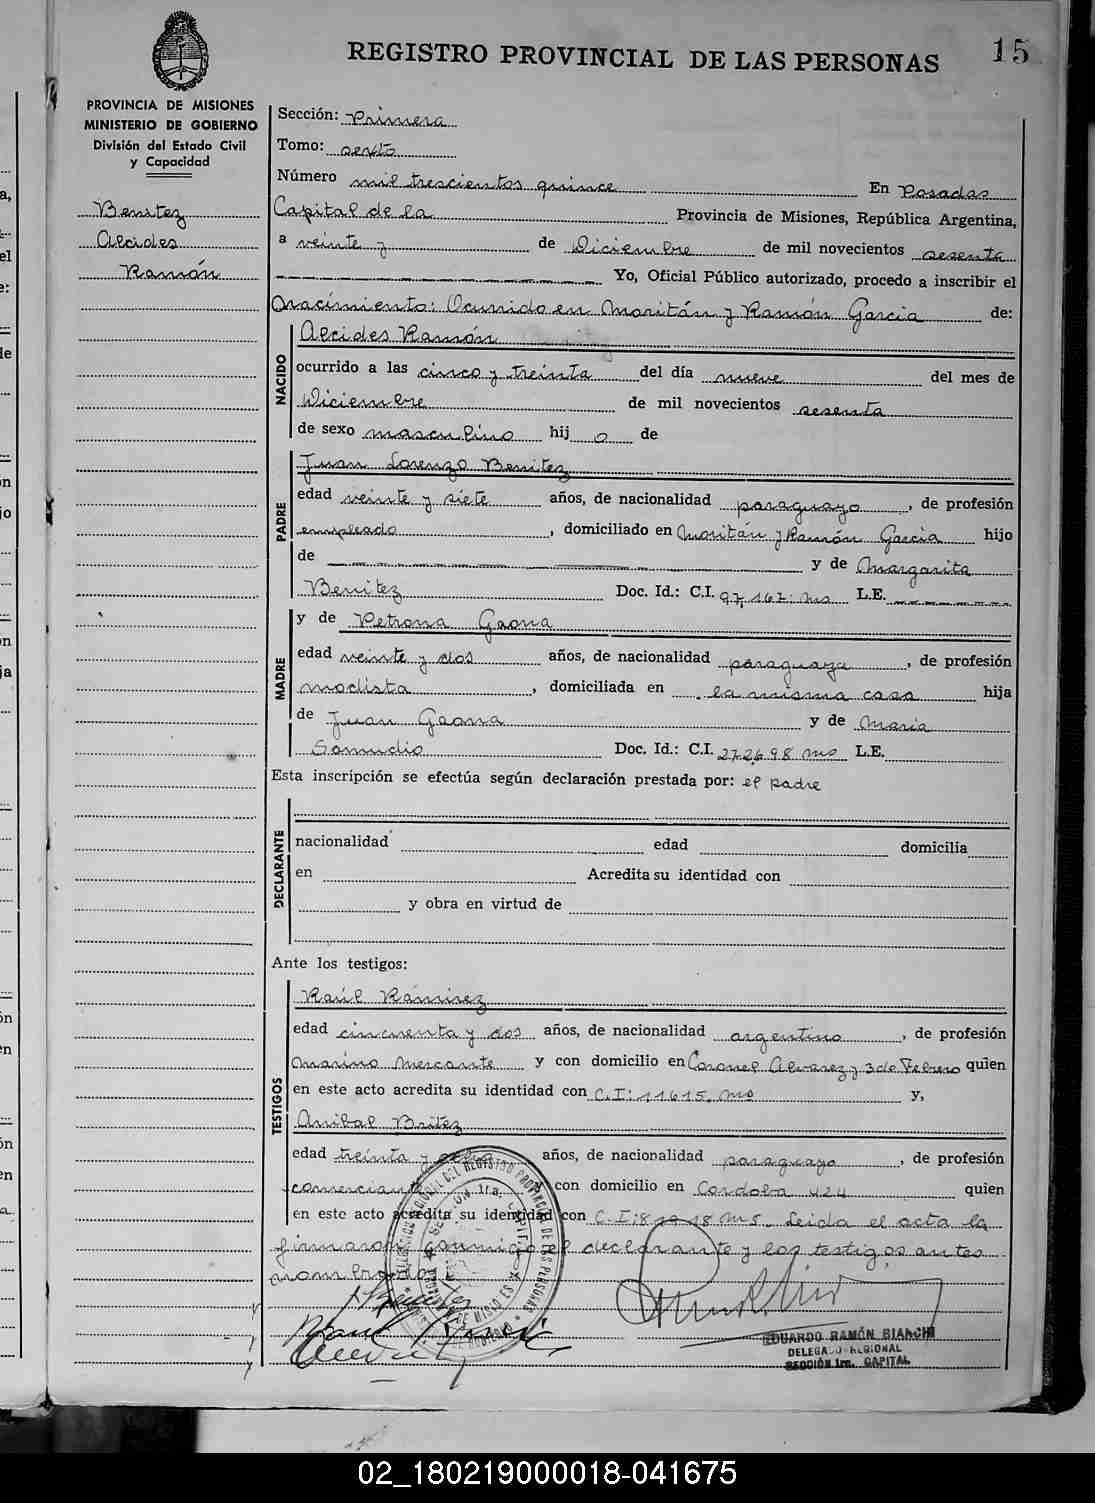 REGISTRO PROVINCIAL DE LAS PERSONAS
15
PROVINCIA DE MISIONES
MINISTERIO DE GOBIERNO
División del Estado Civil
y Capacidad
Benitez
Alcides
Ramón
Sección: Primera
Tomo: sexto
Número mil trescientos quince En Posadas
Capital de la Provincia de Misiones, República Argentina,
a veinte y de Diciembre de mil novecientos sesenta
Yo, Oficial Público autorizado, procedo a inscribir el
nacimiento: Ocurrido en Moritán y Ramón Garcia de:
NACIDO
Alcides Ramón
ocurrido a las cinco y treinta del día nueve del mes de
Diciembre de mil novecientos sesenta
de sexo masculino hij o de
PADRE
Juan Lorenzo Benitez
edad veinte y siete años, de nacionalidad paraguayo, de profesión
empleado, domiciliado en Moritán y Ramón Garcia hijo
de y de Margarita
Benitez Doc. Id.: C.I. 97.167. Ms L.E.
MADRE
y de Petrona Gaona
edad veinte y dos años, de nacionalidad paraguaya, de profesión
modista, domiciliada en la misma casa hija
de Juan Gaona y de Maria
Samudio Doc. Id.: C.I. 272698 Ms L.E.
Esta inscripción se efectúa según declaración prestada por: el padre
DECLARANTE
nacionalidad edad domicilia
en Acredita su identidad con
y obra en virtud de
Ante los testigos:
TESTIGOS
Raúl Ramirez
edad cincuenta y dos años, de nacionalidad argentino, de profesión
Marino Mercante y con domicilio en Coronel Alvarez y 3 de Febrero quien
en este acto acredita su identidad con C.I: 11615. Ms y,
Anibal Britez
edad treinta y años, de nacionalidad paraguayo, de profesión
comerciante y con domicilio en Cordoba 424 quien
en este acto acredita su identidad con C.I: Ms. Leida el acta la
firmaron conmigo el declarante y los testigos antes
nombrados
EDUARDO RAMÓN BIANCHI
DELEGADO REGIONAL
SECCIÓN 1ra. CAPITAL
02_180219000018-041675